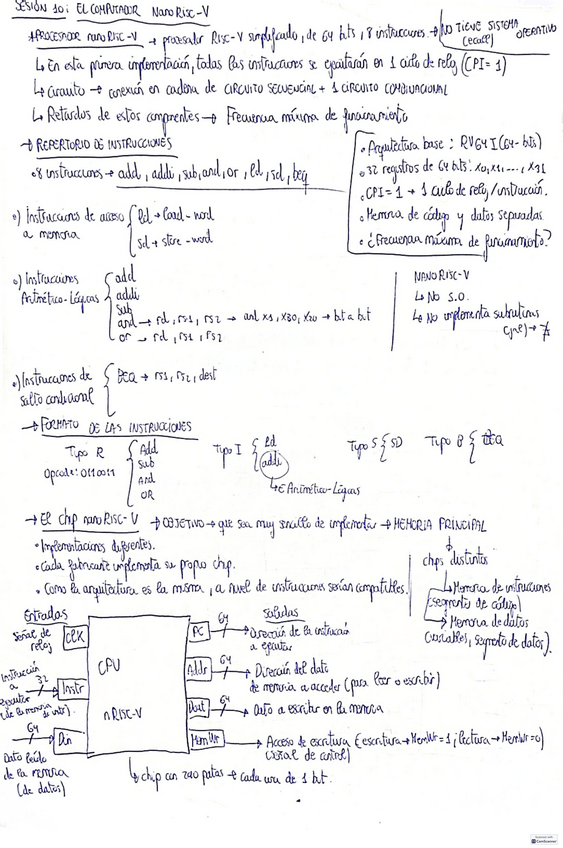 SESIÓN 10: EL COMPUTADOR NanoRisc-V
PROCESADOR nanoRISC-V → procesador RISC-V simplificado, de 64 bits, 8 instrucciones. → NO TIENE SISTEMA OPERATIVO (ecall)
↳ En esta primera implementación, todas las instrucciones se ejecutarán en 1 ciclo de reloj (CPI=1)
↳ Circuito → conexión en cadena de CIRCUITO SECUENCIAL + 1 CIRCUITO COMBINACIONAL
↳ Retardos de estos componentes → Frecuencia máxima de funcionamiento
→ REPERTORIO DE INSTRUCCIONES
• 8 instrucciones → add, addi, sub, and, or, ld, sd, beq
• Arquitectura base: RV64I (64-bits)
• 32 registros de 64 bits: x0, x1, ..., x31
• CPI=1 → 1 ciclo de reloj/instrucción.
• Memoria de código y datos separadas
• ¿Frecuencia máxima de funcionamiento?
•) Instrucciones de acceso a memoria
ld → load-word
sd → store-word
•) Instrucciones Aritmético-Lógicas
add
addi
sub
and → rd, rs1, rs2 → and x1, x30, x20 → bit a bit
or → rd, rs1, rs2
NANORISC-V
↳ No S.O.
↳ No implementa subrutinas
•) Instrucciones de salto condicional
BEQ → rs1, rs2, dest
→ FORMATO DE LAS INSTRUCCIONES
Tipo R
Opcode: 0110011
Add
Sub
And
OR
Tipo I
Ld
addi
↳ ∈ Aritmético-Lógicas
Tipo S { SD
Tipo B { BEQ
→ El chip nanoRISC-V → OBJETIVO → que sea muy sencillo de implementar → MEMORIA PRINCIPAL
• Implementaciones diferentes.
• Cada fabricante implementa su propio chip.
• Como la arquitectura es la misma, a nivel de instrucciones serían compatibles.
chips distintos
↳ Memoria de instrucciones (segmento de código)
→ Memoria de datos (variables, segmento de datos).
Entradas
Señal de reloj
CLK
Instrucción a ejecutar
(de la memoria de instr.)
32
Instr
64
Din
Dato leído de la memoria (de datos)
CPU
nRISC-V
Salidas
PC 64 → Dirección de la instrucción a ejecutar
Addr 64 → Dirección del dato de memoria a acceder (para leer o escribir)
Dout 64 → Dato a escribir en la memoria
MemWr → Acceso de escritura (escritura → MemWr=1; lectura → MemWr=0)
(señal de control)
↳ chip con 240 patas → cada una de 1 bit.
CamScanner